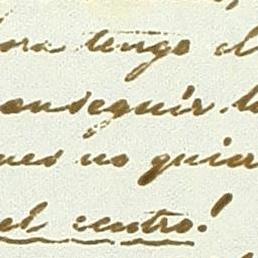 ora tengo el
onseguir. l
ues no quier
el centro!